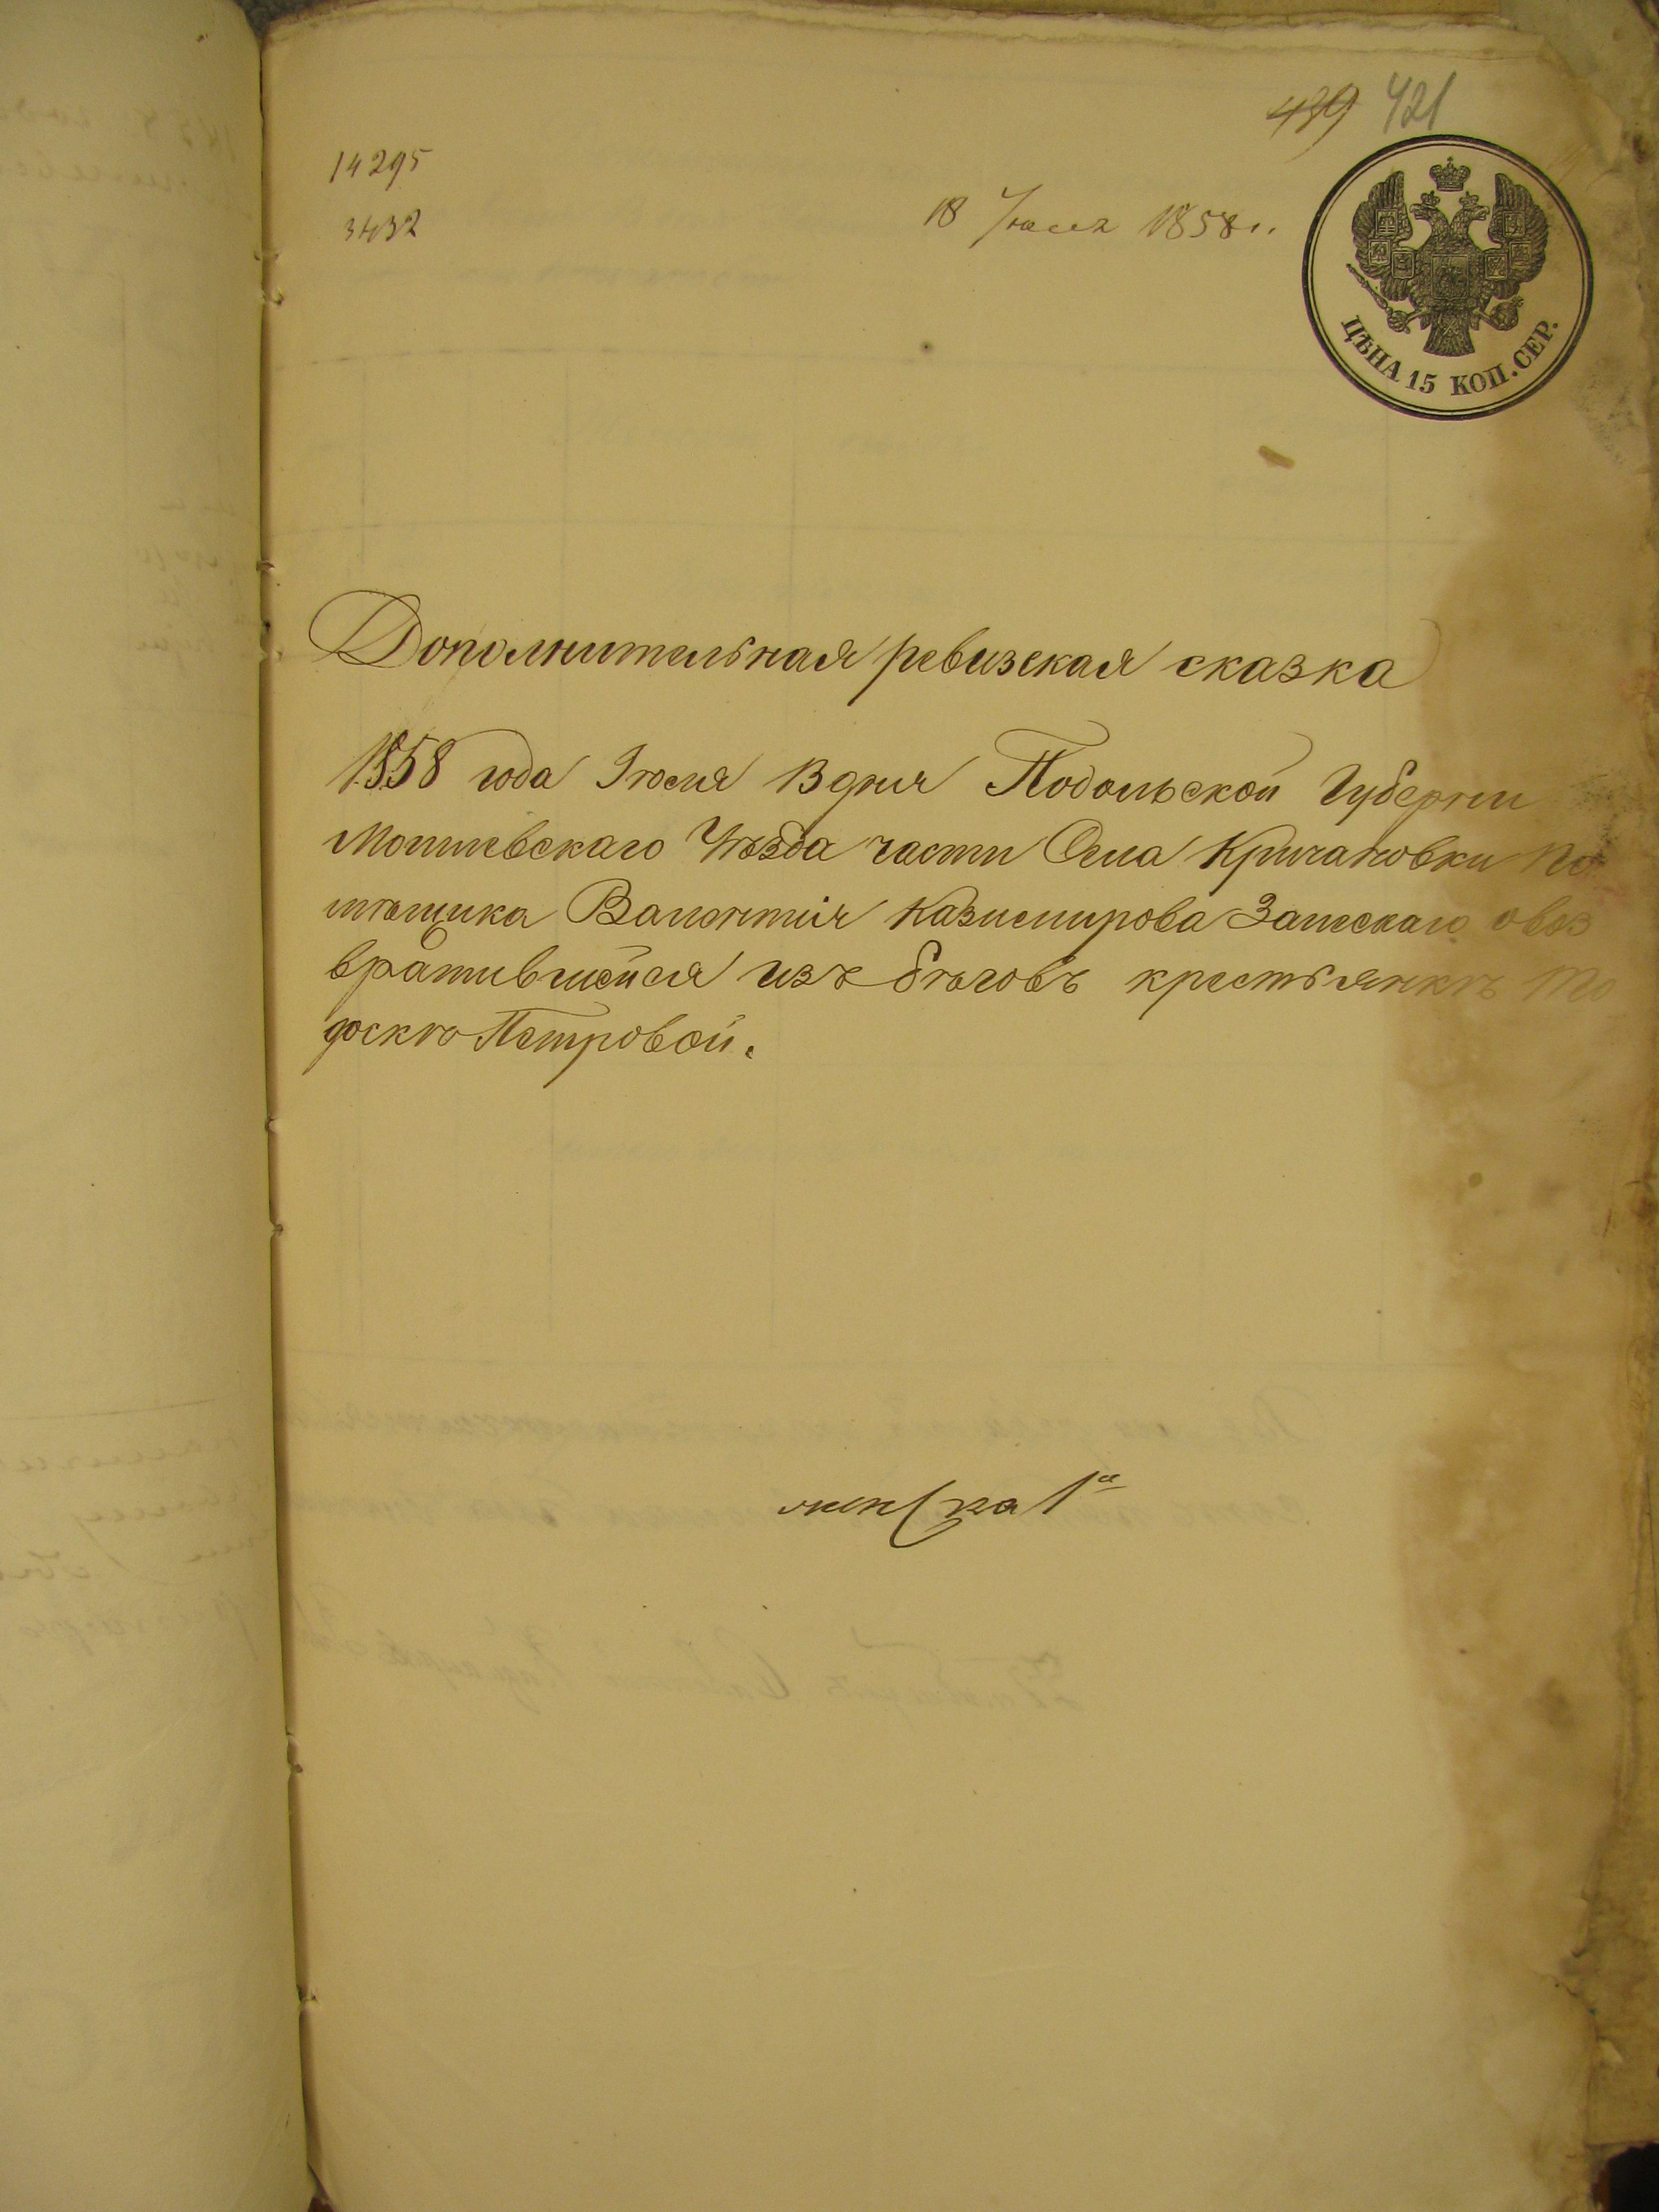 439 421
14295
3432
18 Июля 1858 г.
ЦѢНА 15 КОП. СЕР.
Дополнительная ревизская сказка
1858 года Іюля 13 дня Подольской Губерніи
Могилевскаго Уѣзда части Села Кричановки По
мѣщика Валентія Казимирова Залескаго о воз
вратившейся изъ бѣговъ крестьянкѣ То
фскѣ Петровой.
жен